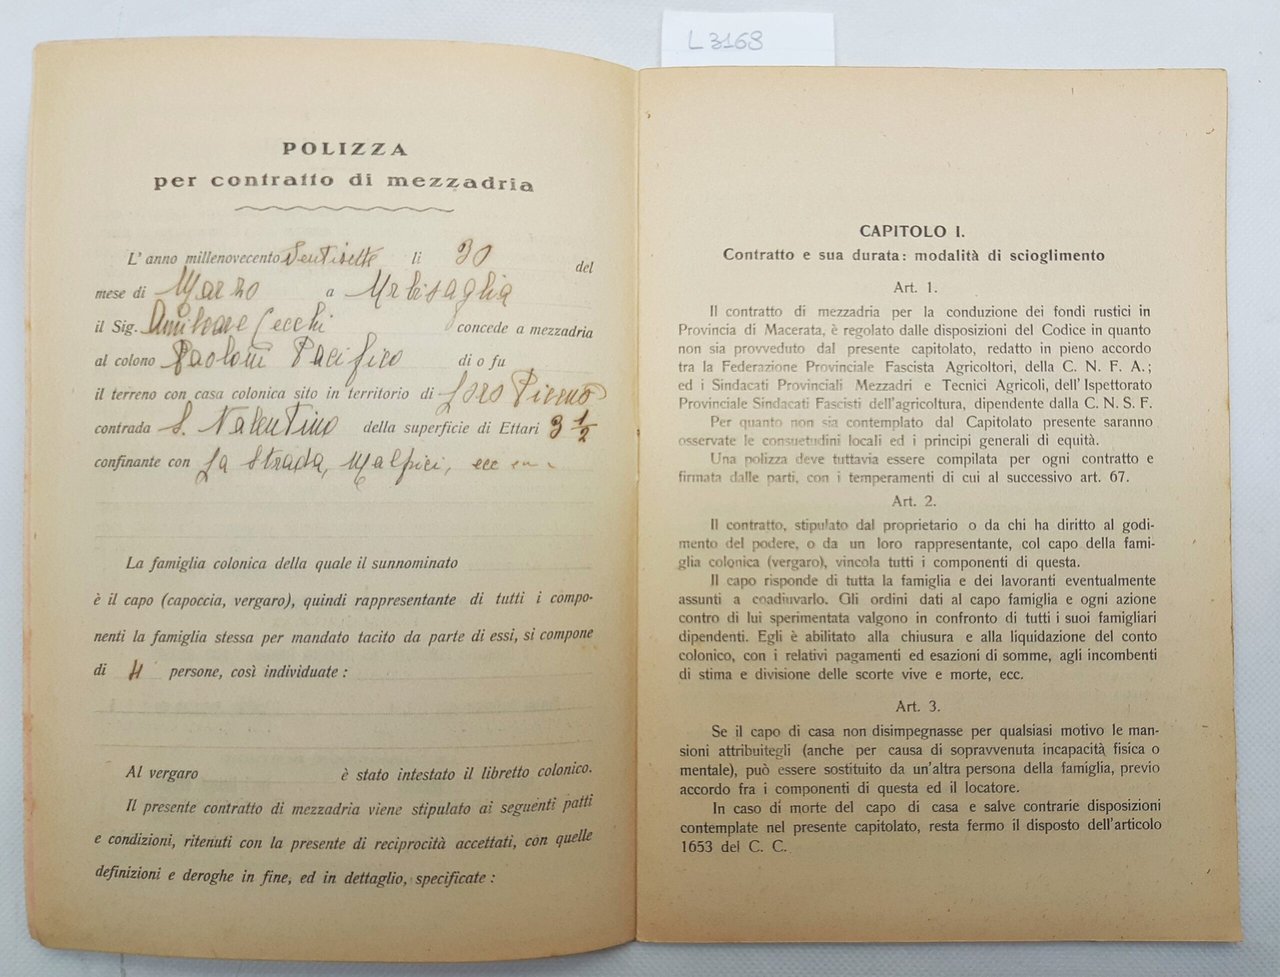 L 3168
POLIZZA
per contratto di mezzadria
L' anno millenovecento Ventisette li 30 del
mese di Marzo a Urbisaglia
il Sig. Amilcare Cecchi concede a mezzadria
al colono Paoloni Pacifico di o fu
il terreno con casa colonica sito in territorio di Loro Piceno
contrada S. Valentino della superficie di Ettari 3 1/2
confinante con La Strada, Malpici, ecc
La famiglia colonica della quale il sunnominato
è il capo (capoccia, vergaro), quindi rappresentante di tutti i compo-
nenti la famiglia stessa per mandato tacito da parte di essi, si compone
di 4 persone, così individuate :
Al vergaro è stato intestato il libretto colonico.
Il presente contratto di mezzadria viene stipulato ai seguenti patti
e condizioni, ritenuti con la presente di reciprocità accettati, con quelle
definizioni e deroghe in fine, ed in dettaglio, specificate :
CAPITOLO I.
Contratto e sua durata: modalità di scioglimento
Art. 1.
Il contratto di mezzadria per la conduzione dei fondi rustici in
Provincia di Macerata, è regolato dalle disposizioni del Codice in quanto
non sia provveduto dal presente capitolato, redatto in pieno accordo
tra la Federazione Provinciale Fascista Agricoltori, della C. N. F. A.;
ed i Sindacati Provinciali Mezzadri e Tecnici Agricoli, dell' Ispettorato
Provinciale Sindacati Fascisti dell'agricoltura, dipendente dalla C. N. S. F.
Per quanto non sia contemplato dal Capitolato presente saranno
osservate le consuetudini locali ed i principi generali di equità.
Una polizza deve tuttavia essere compilata per ogni contratto e
firmata dalle parti, con i temperamenti di cui al successivo art. 67.
Art. 2.
Il contratto, stipulato dal proprietario o da chi ha diritto al godi-
mento del podere, o da un loro rappresentante, col capo della fami-
glia colonica (vergaro), vincola tutti i componenti di questa.
Il capo risponde di tutta la famiglia e dei lavoranti eventualmente
assunti a coadiuvarlo. Gli ordini dati al capo famiglia e ogni azione
contro di lui sperimentata valgono in confronto di tutti i suoi famigliari
dipendenti. Egli è abilitato alla chiusura e alla liquidazione del conto
colonico, con i relativi pagamenti ed esazioni di somme, agli incombenti
di stima e divisione delle scorte vive e morte, ecc.
Art. 3.
Se il capo di casa non disimpegnasse per qualsiasi motivo le man-
sioni attribuitegli (anche per causa di sopravvenuta incapacità fisica o
mentale), può essere sostituito da un'altra persona della famiglia, previo
accordo fra i componenti di questa ed il locatore.
In caso di morte del capo di casa e salve contrarie disposizioni
contemplate nel presente capitolato, resta fermo il disposto dell'articolo
1653 del C. C.